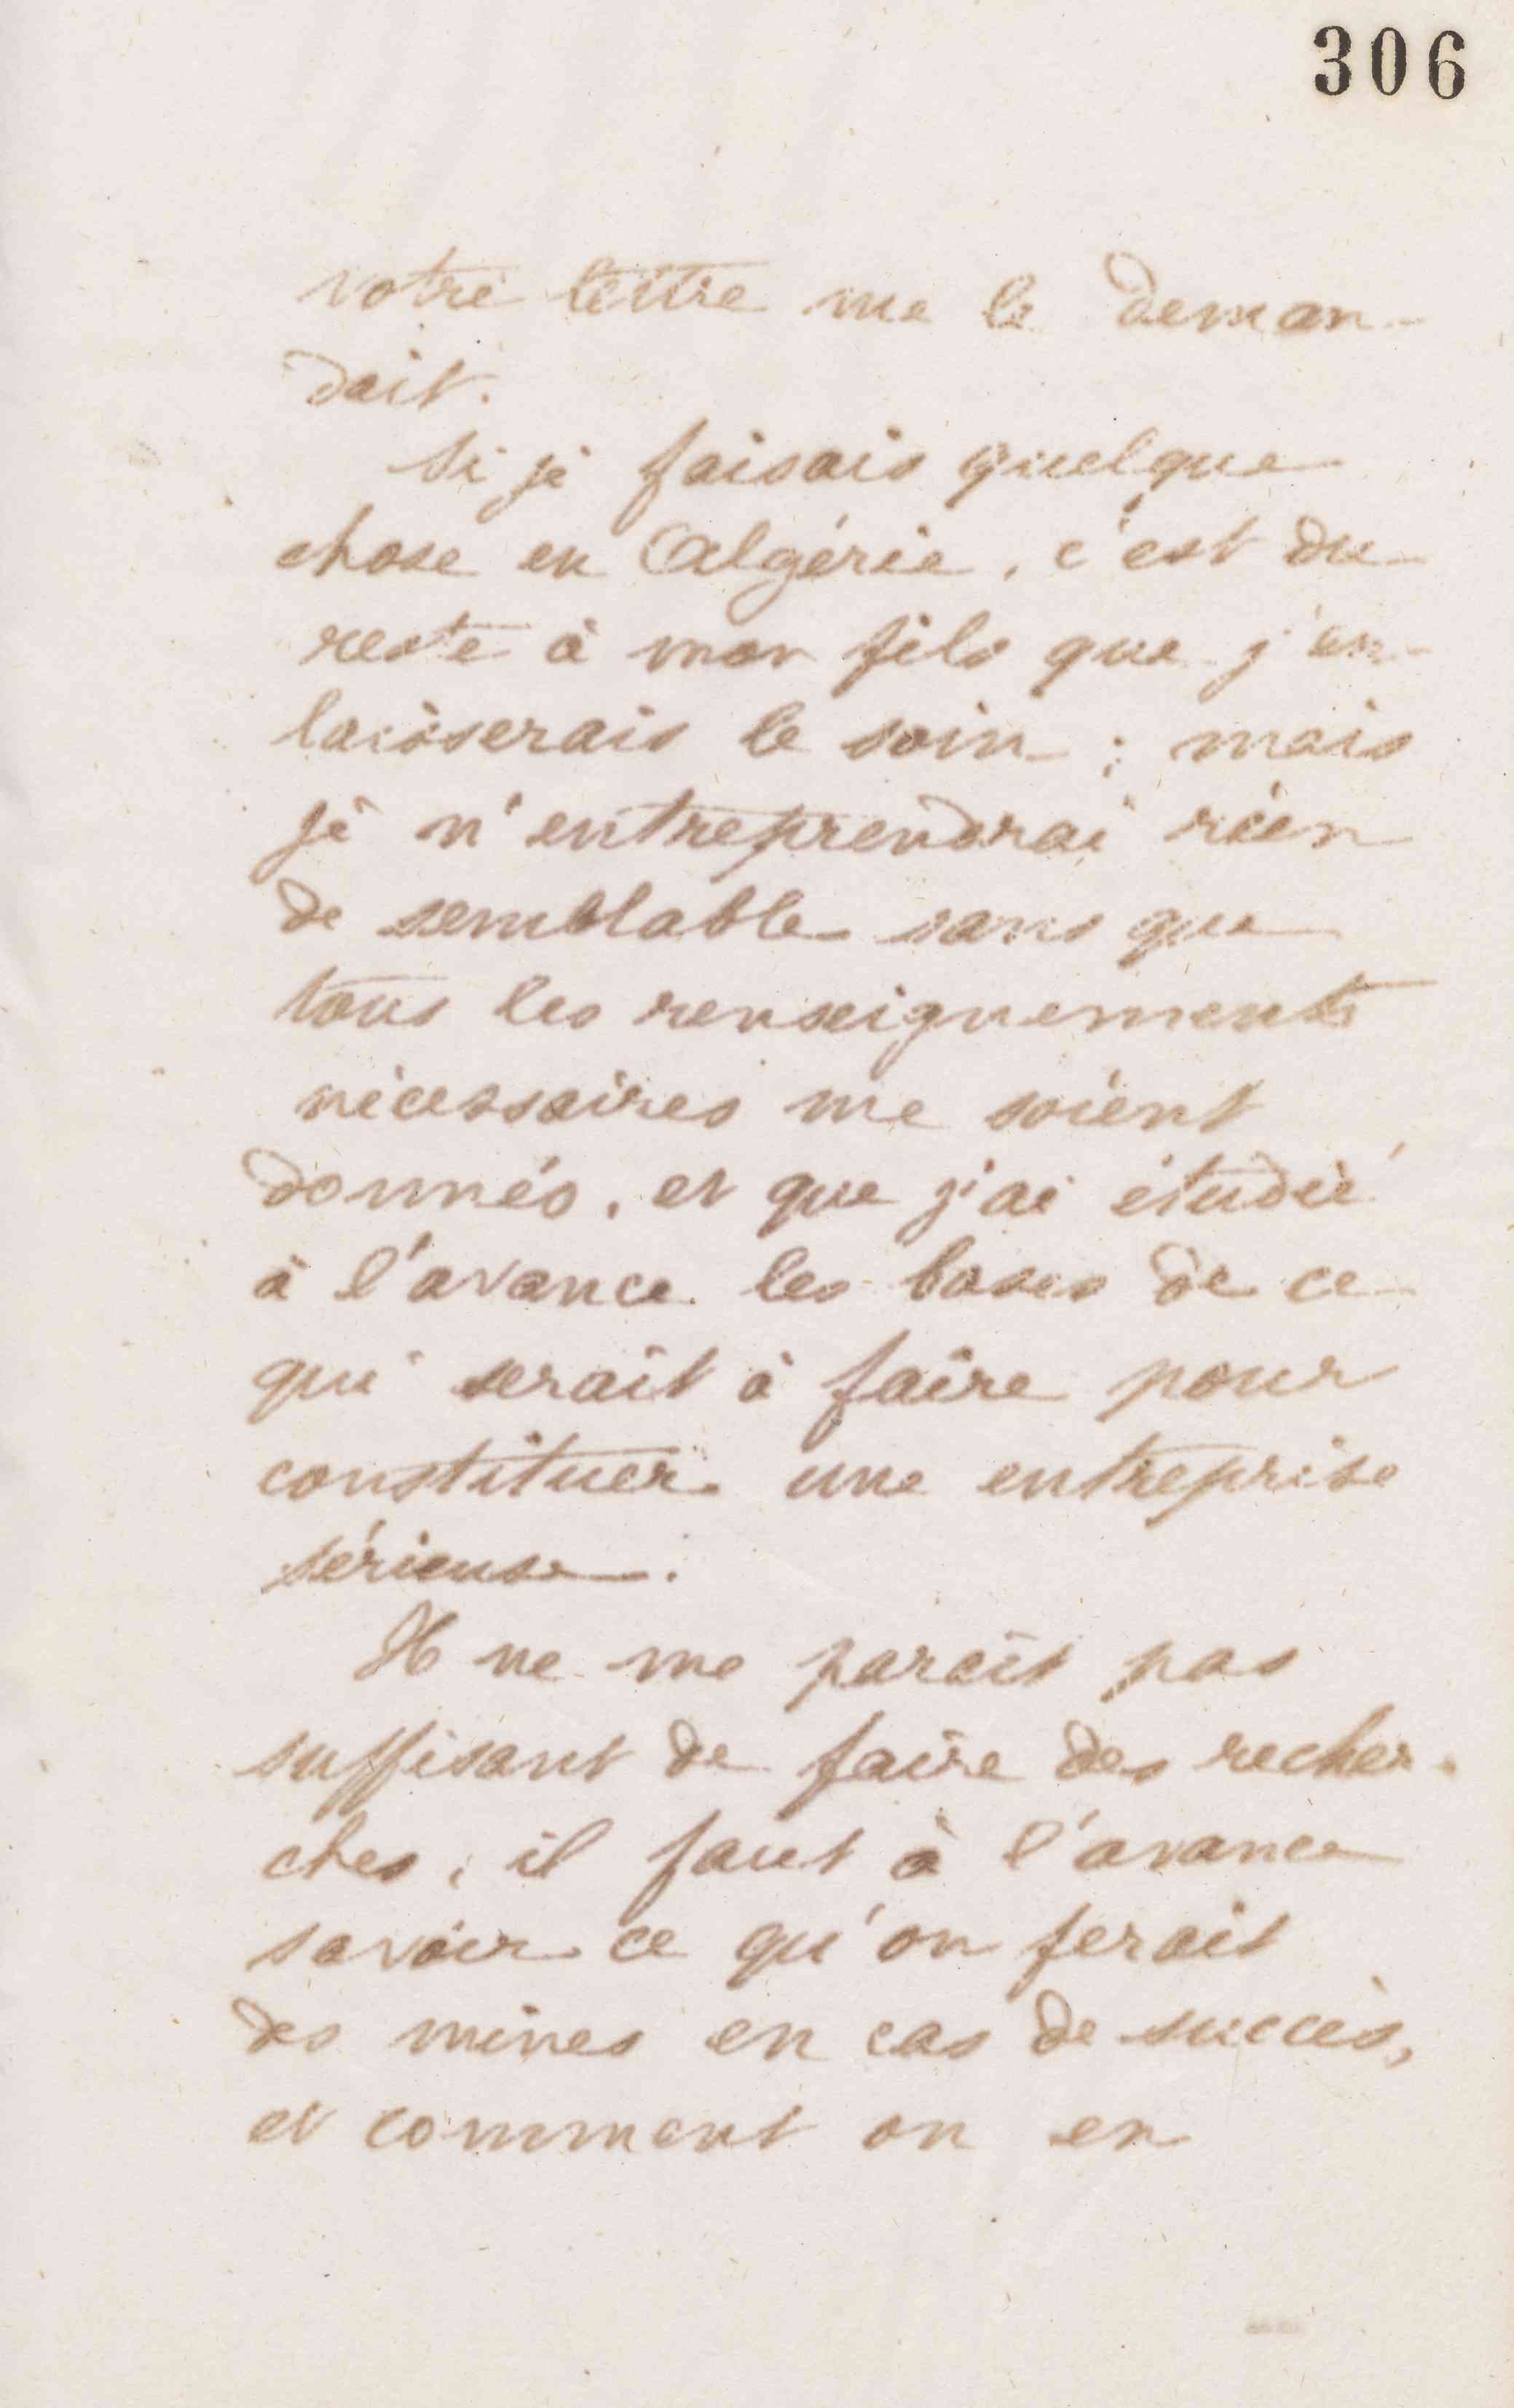 306
votre lettre me le deman-
dait.
Si je faisais quelque
chose en Algérie, c'est du
reste à mon fils que j'en
laisserais le soin ; mais
je n'entreprendrai rien
de semblable sans que
tous les renseignements
nécessaires me soient
donnés, et que j'ai étudié
à l'avance les bases de ce
qui serait à faire pour
constituer une entreprise
sérieuse.
Il ne me paraît pas
suffisant de faire des recher-
ches, il faut à l'avance
savoir ce qu'on ferait
des mines en cas de succès,
et comment on en